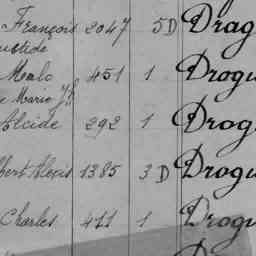 François 2047 5 D Drag
Malo 451 1 Drogu
e Marie
Alcide 292 1 Drog
bert Alexis 1385 3 D Drogu
Charles 411 1 Drogu